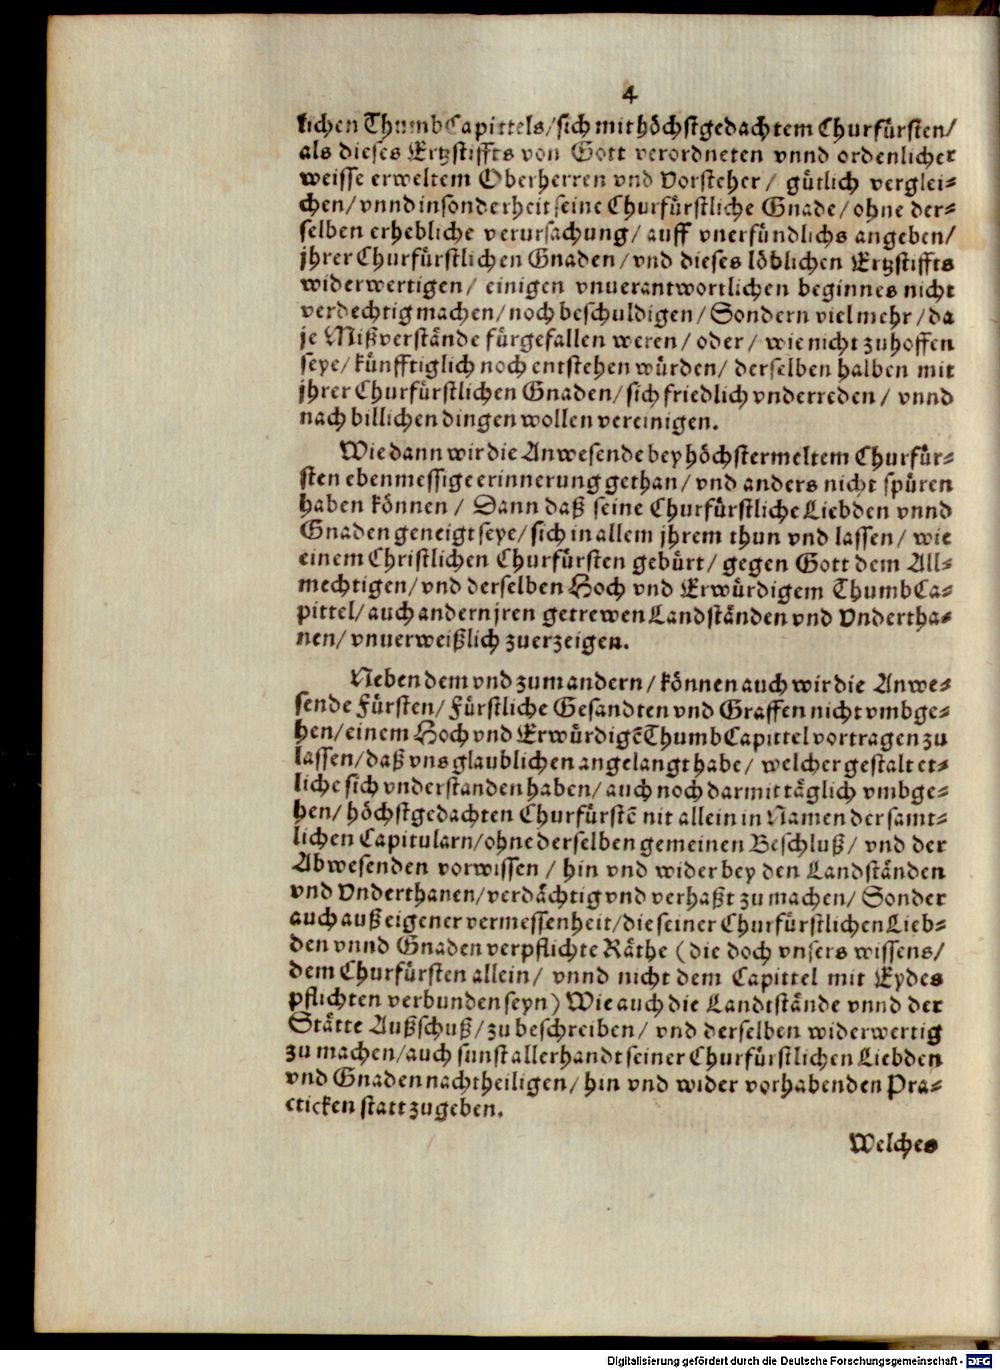 4
lichen ThumbCapittels/sich mit höchstgedachtem Churfürsten/
als dieses Ertzstiffts von Gott verordneten vnnd ordenlicher
weisse erweltem Oberherren vnd Vorsteher/ gütlich verglei-
chen/vnnd insonderheit seine Churfürstliche Gnade/ohne der-
selben erhebliche verursachung/ auff vnerfündlichs angeben/
jhrer Churfürstlichen Gnaden/vnd dieses löblichen Ertzstiffts
widerwertigen/ einigen vnuerantwortlichen beginnes nicht
verdechtig machen/noch beschuldigen/Sondern viel mehr/da
je Mißverstände fürgefallen weren/ oder/ wie nicht zuhoffen
seye/künfftiglich noch entstehen würden/ derselben halben mit
jhrer Churfürstlichen Gnaden/sich friedlich vnderreden/ vnnd
nach billichen dingen wollen vereinigen.
Wie dann wir die Anwesende bey höchstermeltem Churfür-
sten ebenmessige erinnerung gethan/vnd anders nicht spüren
haben können/ Dann daß seine Churfürstliche Liebden vnnd
Gnaden geneigt seye/sich in allem jhrem thun vnd lassen/ wie
einem Christlichen Churfürsten gebürt/gegen Gott dem All-
mechtigen/vnd derselben Hoch vnd Erwürdigem ThumbCa-
pittel/auch andern jren getrewen Landständen vnd Vndertha-
nen/vnuerweißlich zuerzeigen.
Neben dem vnd zum andern/können auch wir die Anwe-
sende Fürsten/Fürstliche Gesandten vnd Graffen nicht vmbge-
hen/einem Hoch vnd Erwürdigē ThumbCapittel vortragen zu
lassen/daß vns glaublichen angelangt habe/ welcher gestalt et-
liche sich vnderstanden haben/auch noch darmit täglich vmbge-
hen/höchstgedachten Churfürstē nit allein in Namen der samt-
lichen Capitularn/ohne derselben gemeinen Beschluß/ vnd der
Abwesenden vorwissen/ hin vnd wider bey den Landständen
vnd Vnderthanen/verdächtig vnd verhaßt zu machen/Sonder
auch auß eigener vermessenheit/die seiner Churfürstlichen Lieb-
den vnnd Gnaden verpflichte Räthe (die doch vnsers wissens/
dem Churfürsten allein/ vnnd nicht dem Capittel mit Eydes
pflichten verbunden seyn) Wie auch die Landtstände vnnd der
Stätte Außschuß/zu beschreiben/ vnd derselben widerwertig
zu machen/auch sunst allerhandt seiner Churfürstlichen Liebden
vnd Gnaden nachtheiligen/hin vnd wider vorhabenden Pra-
cticken statt zugeben.
Welches
Digitalisierung gefördert durch die Deutsche Forschungsgemeinschaft - DFG